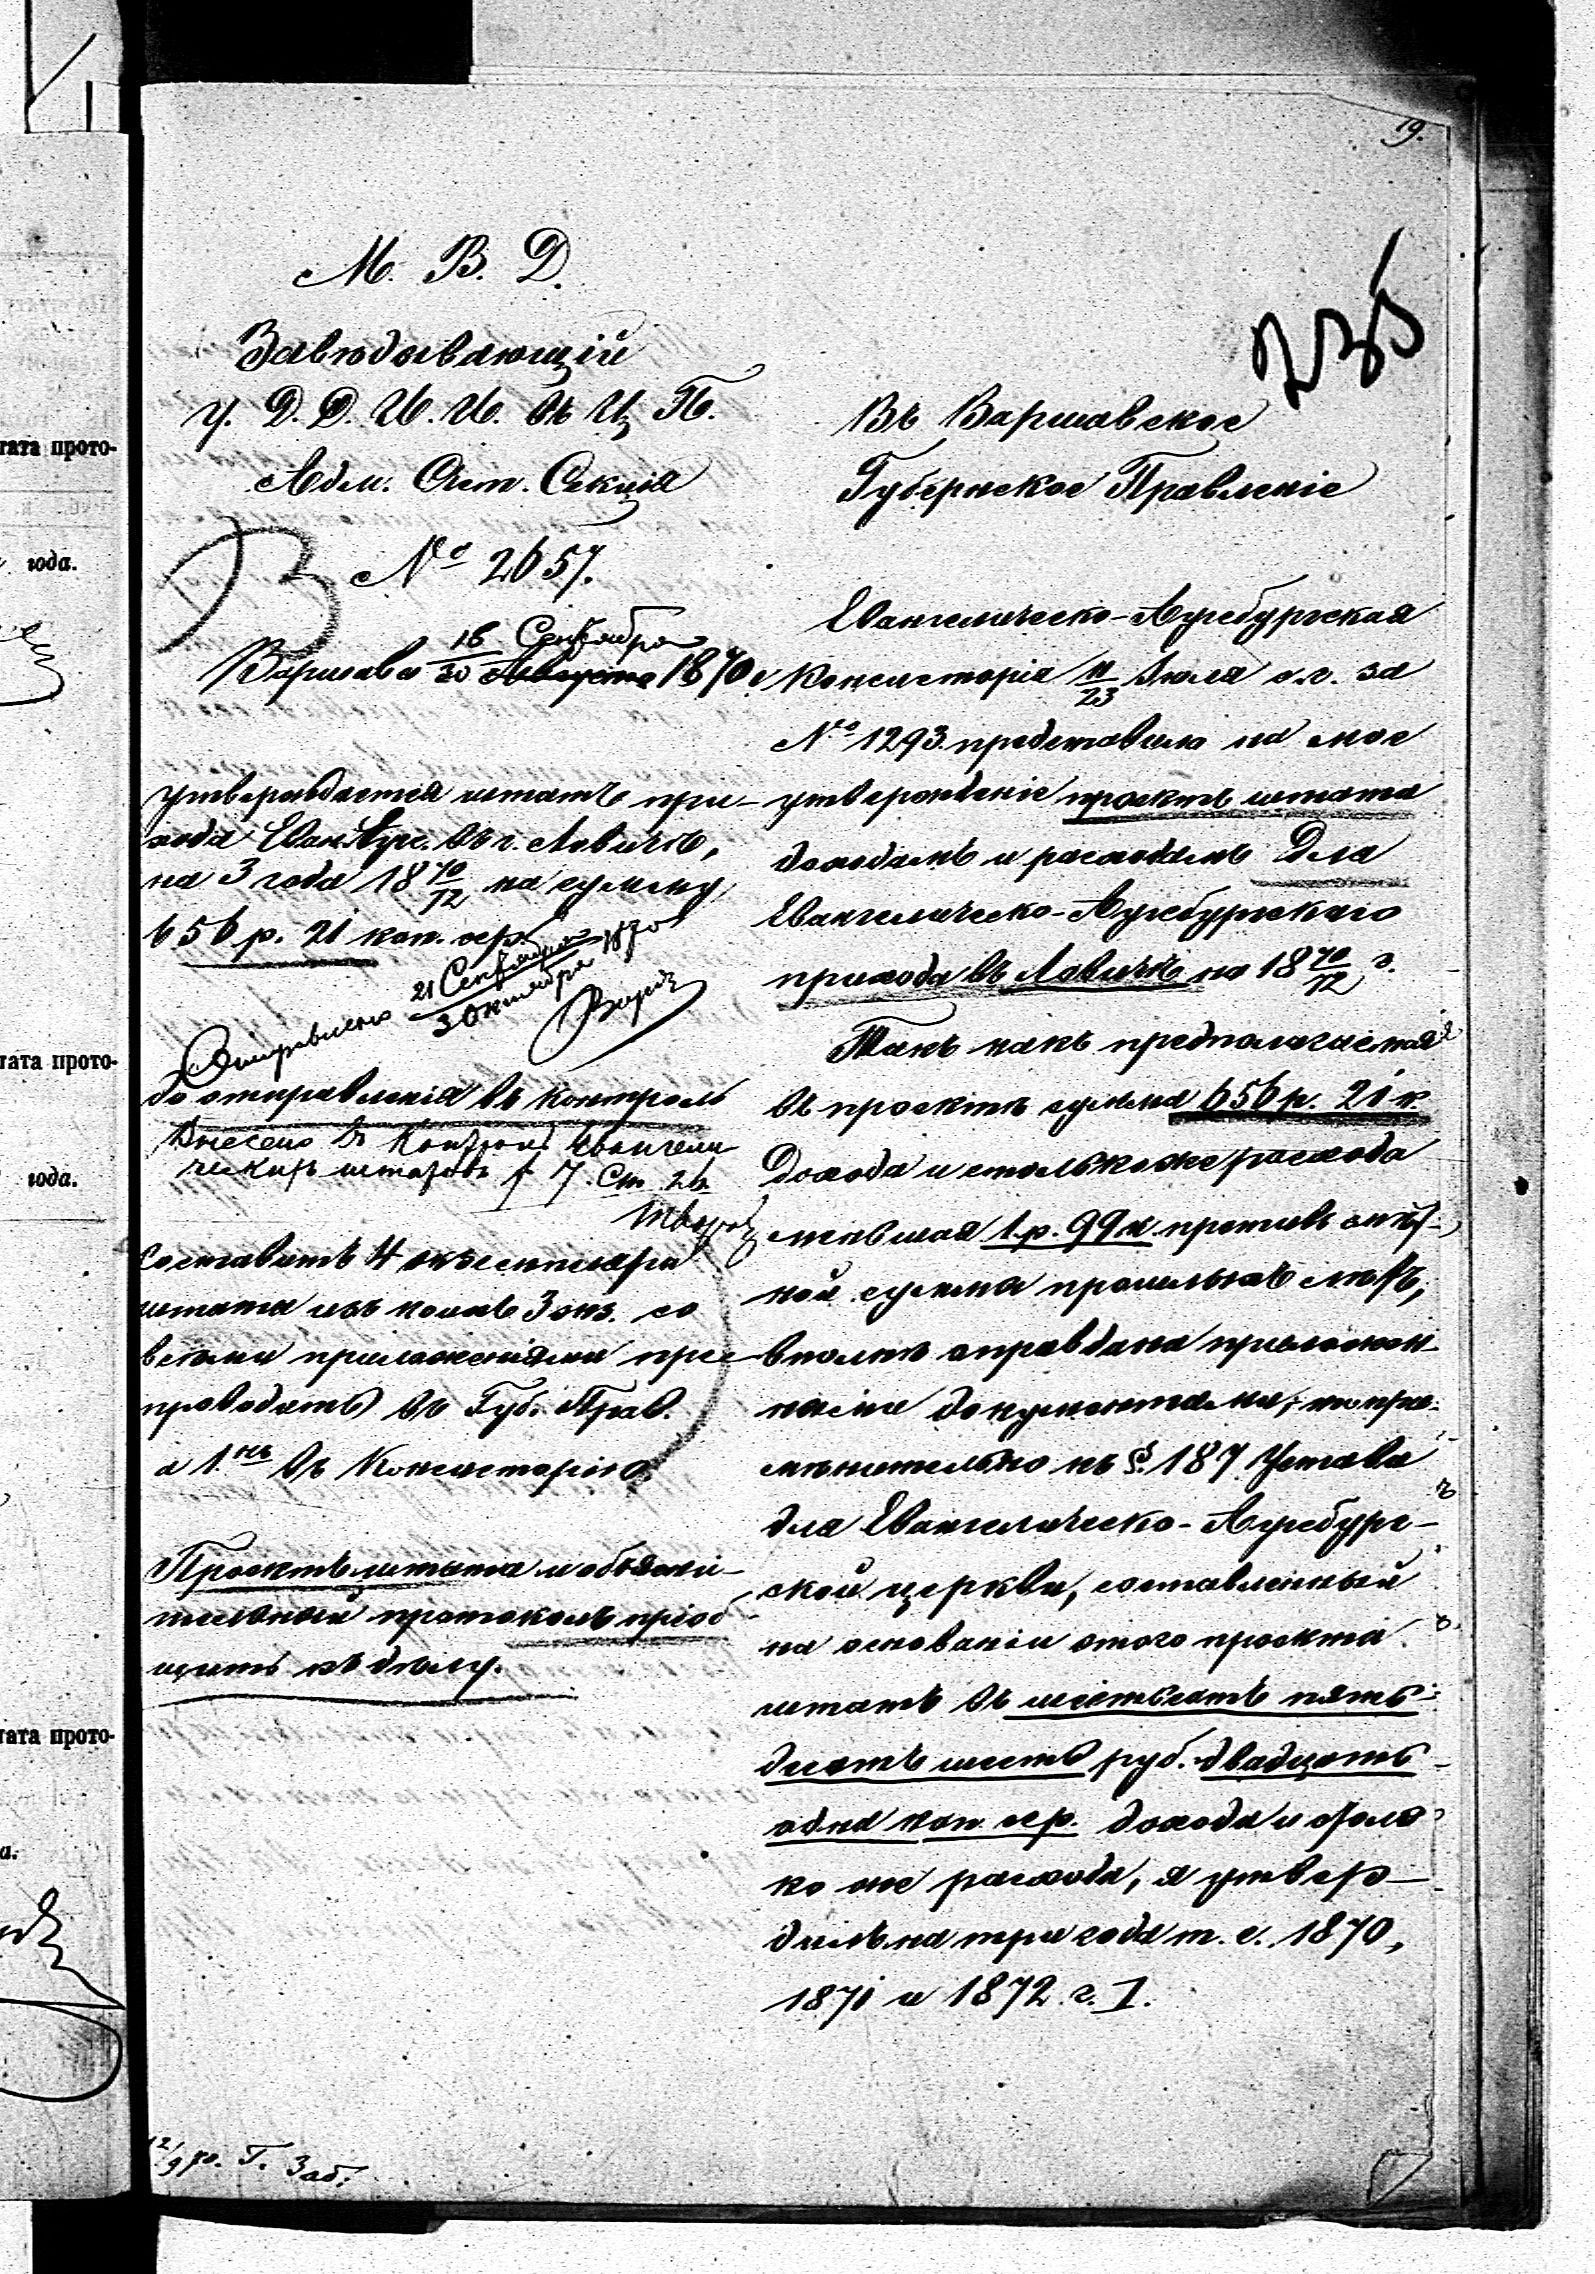 19.
235
М. В. Д.
Завѣдывающій
У. Д. Д. И. И. въ Ц. П.
Адм. Отд. Секція
№ 2657.
Варшава 18/30 Сентября Августа 1870 г.
утверждается штатъ при-
хода Еван. Аугс. въ г. Ловичѣ,
на 3 года 18 70/72 на сумму
656 р. 21 коп. сер.
Отправлено 21 Сентября / 3 Октября 1870
до отправленія въ контроль
Внесено въ Контроль Евангели
ческихъ штатовъ
Ст. 26.
Составить 4 экземпляра
штата изъ коихъ 3 экз. со
всѣми приложеніями пре-
проводить въ Губ. Прав.
а 1нъ въ Консисторію.
Проектъ штата и объясни-
тельный протоколъ пріоб
щить къ дѣлу.
12/9 70. Г. Заб.
Въ Варшавское
Губернское Правленіе
Евангелическо-Аугсбургская
Консисторія 11/23 Іюля с.г. за
№ 1293 представила на мое
утвержденіе проектъ штата
доходамъ и расходамъ для
Евангелическо-Аугсбургскаго
прихода въ Ловичѣ на 18 70/72 г.
Такъ какъ предполагаемая
въ проектѣ сумма 656 р. 21 к.
дохода и столько же расхода
меньшая 1 р. 99 к. противъ смѣт-
ной суммы прошлыхъ лѣтъ,
вполнѣ оправдана приложен-
ными документами, то при-
мѣнительно къ §. 187 Устава
для Евангелическо-Аугсбург-
ской церкви, составленный
на основаніи этого проекта
штатъ въ шестьсотъ пять-
десятъ шесть руб. двадцать
одна коп. сер. дохода и столь
ко же расхода, я утвер-
дилъ на три года т. е. 1870,
1871 и 1872 г. I.
тата прото-
года.
тата прото-
года.
тата прото-
а.